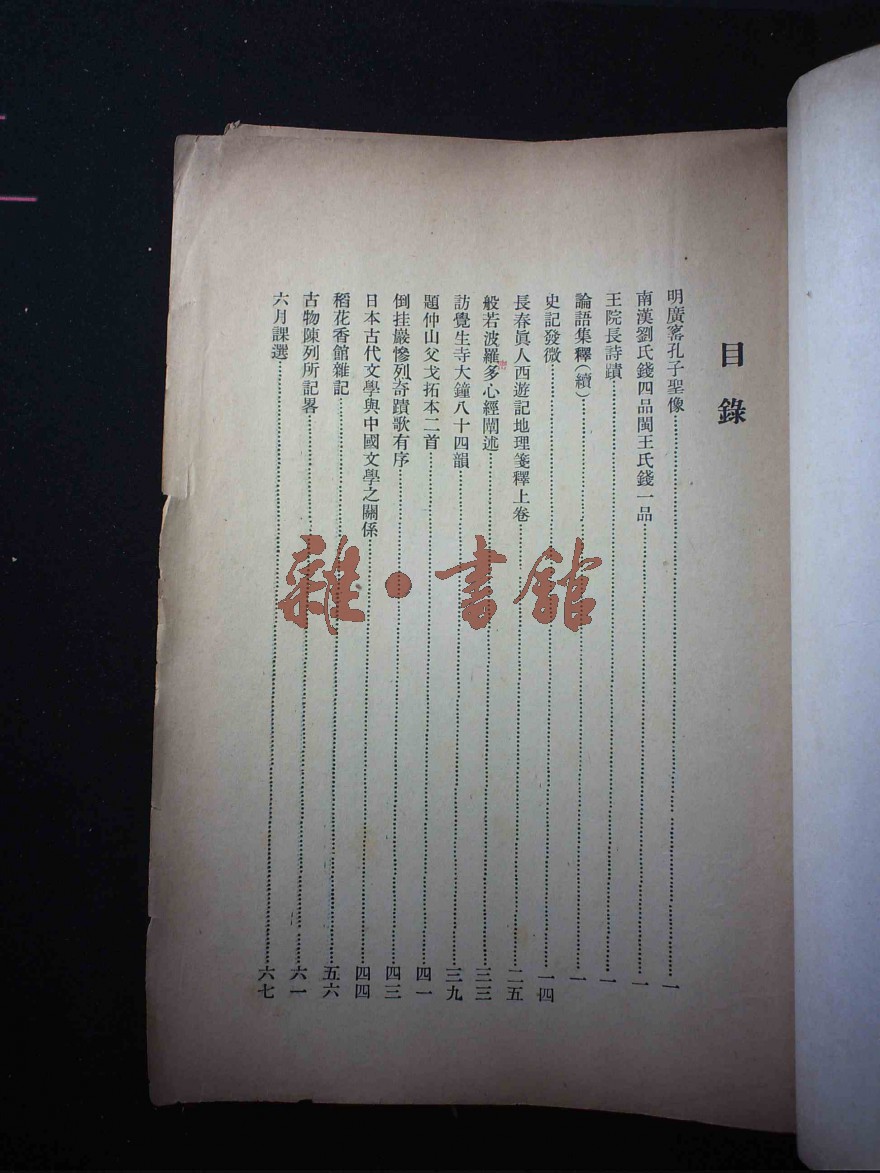 目錄
明廣窰孔子聖像……一
南漢劉氏錢四品閩王氏錢一品……一
王院長詩蹟……一
論語集釋(續)……一
史記發微……一四
長春眞人西遊記地理箋釋上卷……二五
般若波羅多心經闡述……三三
訪覺生寺大鐘八十四韻……三九
題仲山父戈拓本二首……四一
倒挂巖慘列奇蹟歌有序……四三
日本古代文學與中國文學之關係……四四
稻花香館雜記……五六
古物陳列所記畧……六一
六月課選……六七
雜·書館